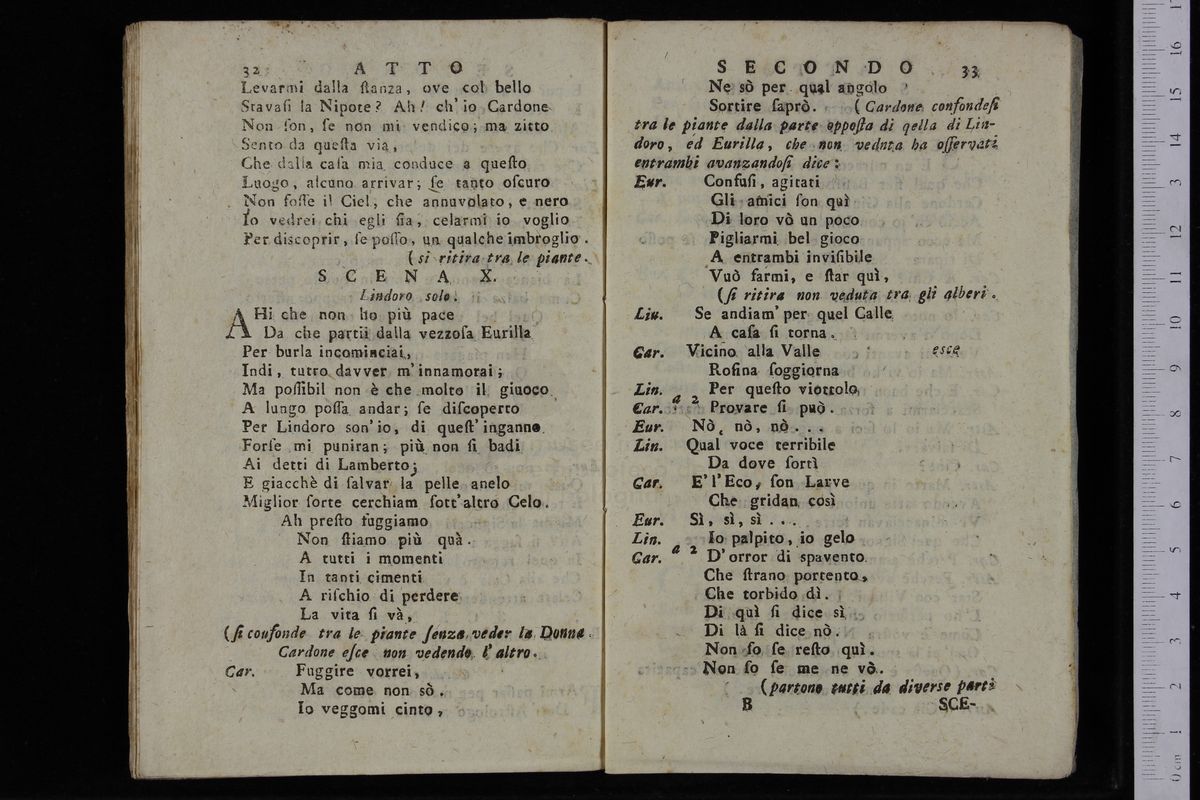 32 ATTO
Levarmi dalla ſtanza, ove col bello
Stavaſi la Nipote? Ah! ch'io Cardone
Non ſon, ſe non mi vendico; ma zitto
Sento da queſta via,
Che dalla caſa mia conduce a queſto
Luogo, alcuno arrivar; ſe tanto oſcuro
Non foſſe il Ciel, che annuvolato, e nero
Io vedrei chi egli ſia, celarmi io voglio
Per discoprir, ſe poſſo, un qualche imbroglio.
(si ritira tra le piante.
SCENA X.
Lindoro solo.
AHi che non ho più pace
Da che partii dalla vezzoſa Eurilla
Per burla incominciai,
Indi, tutto davver m'innamorai;
Ma poſſibil non è che molto il giuoco
A lungo poſſa andar; ſe diſcoperto
Per Lindoro son'io, di queſt'inganno
Forſe mi puniran; più non ſi badi
Ai detti di Lamberto;
E giacchè di ſalvar la pelle anelo
Miglior ſorte cerchiam ſott'altro Celo.
Ah preſto fuggiamo
Non ſtiamo più quà.
A tutti i momenti
In tanti cimenti
A riſchio di perdere
La vita ſi và,
(ſi coufonde tra le piante ſenza veder la Donna.
Cardone eſce non vedendo l'altro.
Car. Fuggire vorrei,
Ma come non sò.
Io veggomi cinto,
SECONDO 33
Ne sò per qual angolo
Sortire ſaprò. (Cardone confondeſi
tra le piante dalla parte oppoſta di qella di Lin-
doro, ed Eurilla, che non vednta ha oſſervati
entrambi avanzandoſi dice:
Eur. Confuſi, agitati
Gli amici ſon quì
Di loro vò un poco
Pigliarmi bel gioco
A entrambi inviſibile
Vuò farmi, e ſtar quì,
(ſi ritira non veduta tra gli alberi.
Liu. Se andiam' per quel Calle
A caſa ſi torna.
Car. Vicino alla Valle esce
Roſina ſoggiorna
Lin. Per queſto viottolo
Car. a 2 Provare ſi può.
Eur. Nò, nò, nò...
Lin. Qual voce terribile
Da dove ſortì
Car. E'l'Eco, ſon Larve
Che gridan così
Eur. Sì, sì, sì...
Lin. Io palpito, io gelo
Car. a 2 D'orror di spavento
Che ſtrano portento,
Che torbido dì.
Di quì ſi dice sì
Di là ſi dice nò.
Non ſo ſe reſto quì.
Non ſo ſe me ne vò.
(partono tutti da diverse parti
B SCE-
17
16
15
14
13
12
11
10
9
8
7
6
5
4
3
2
1
0 cm